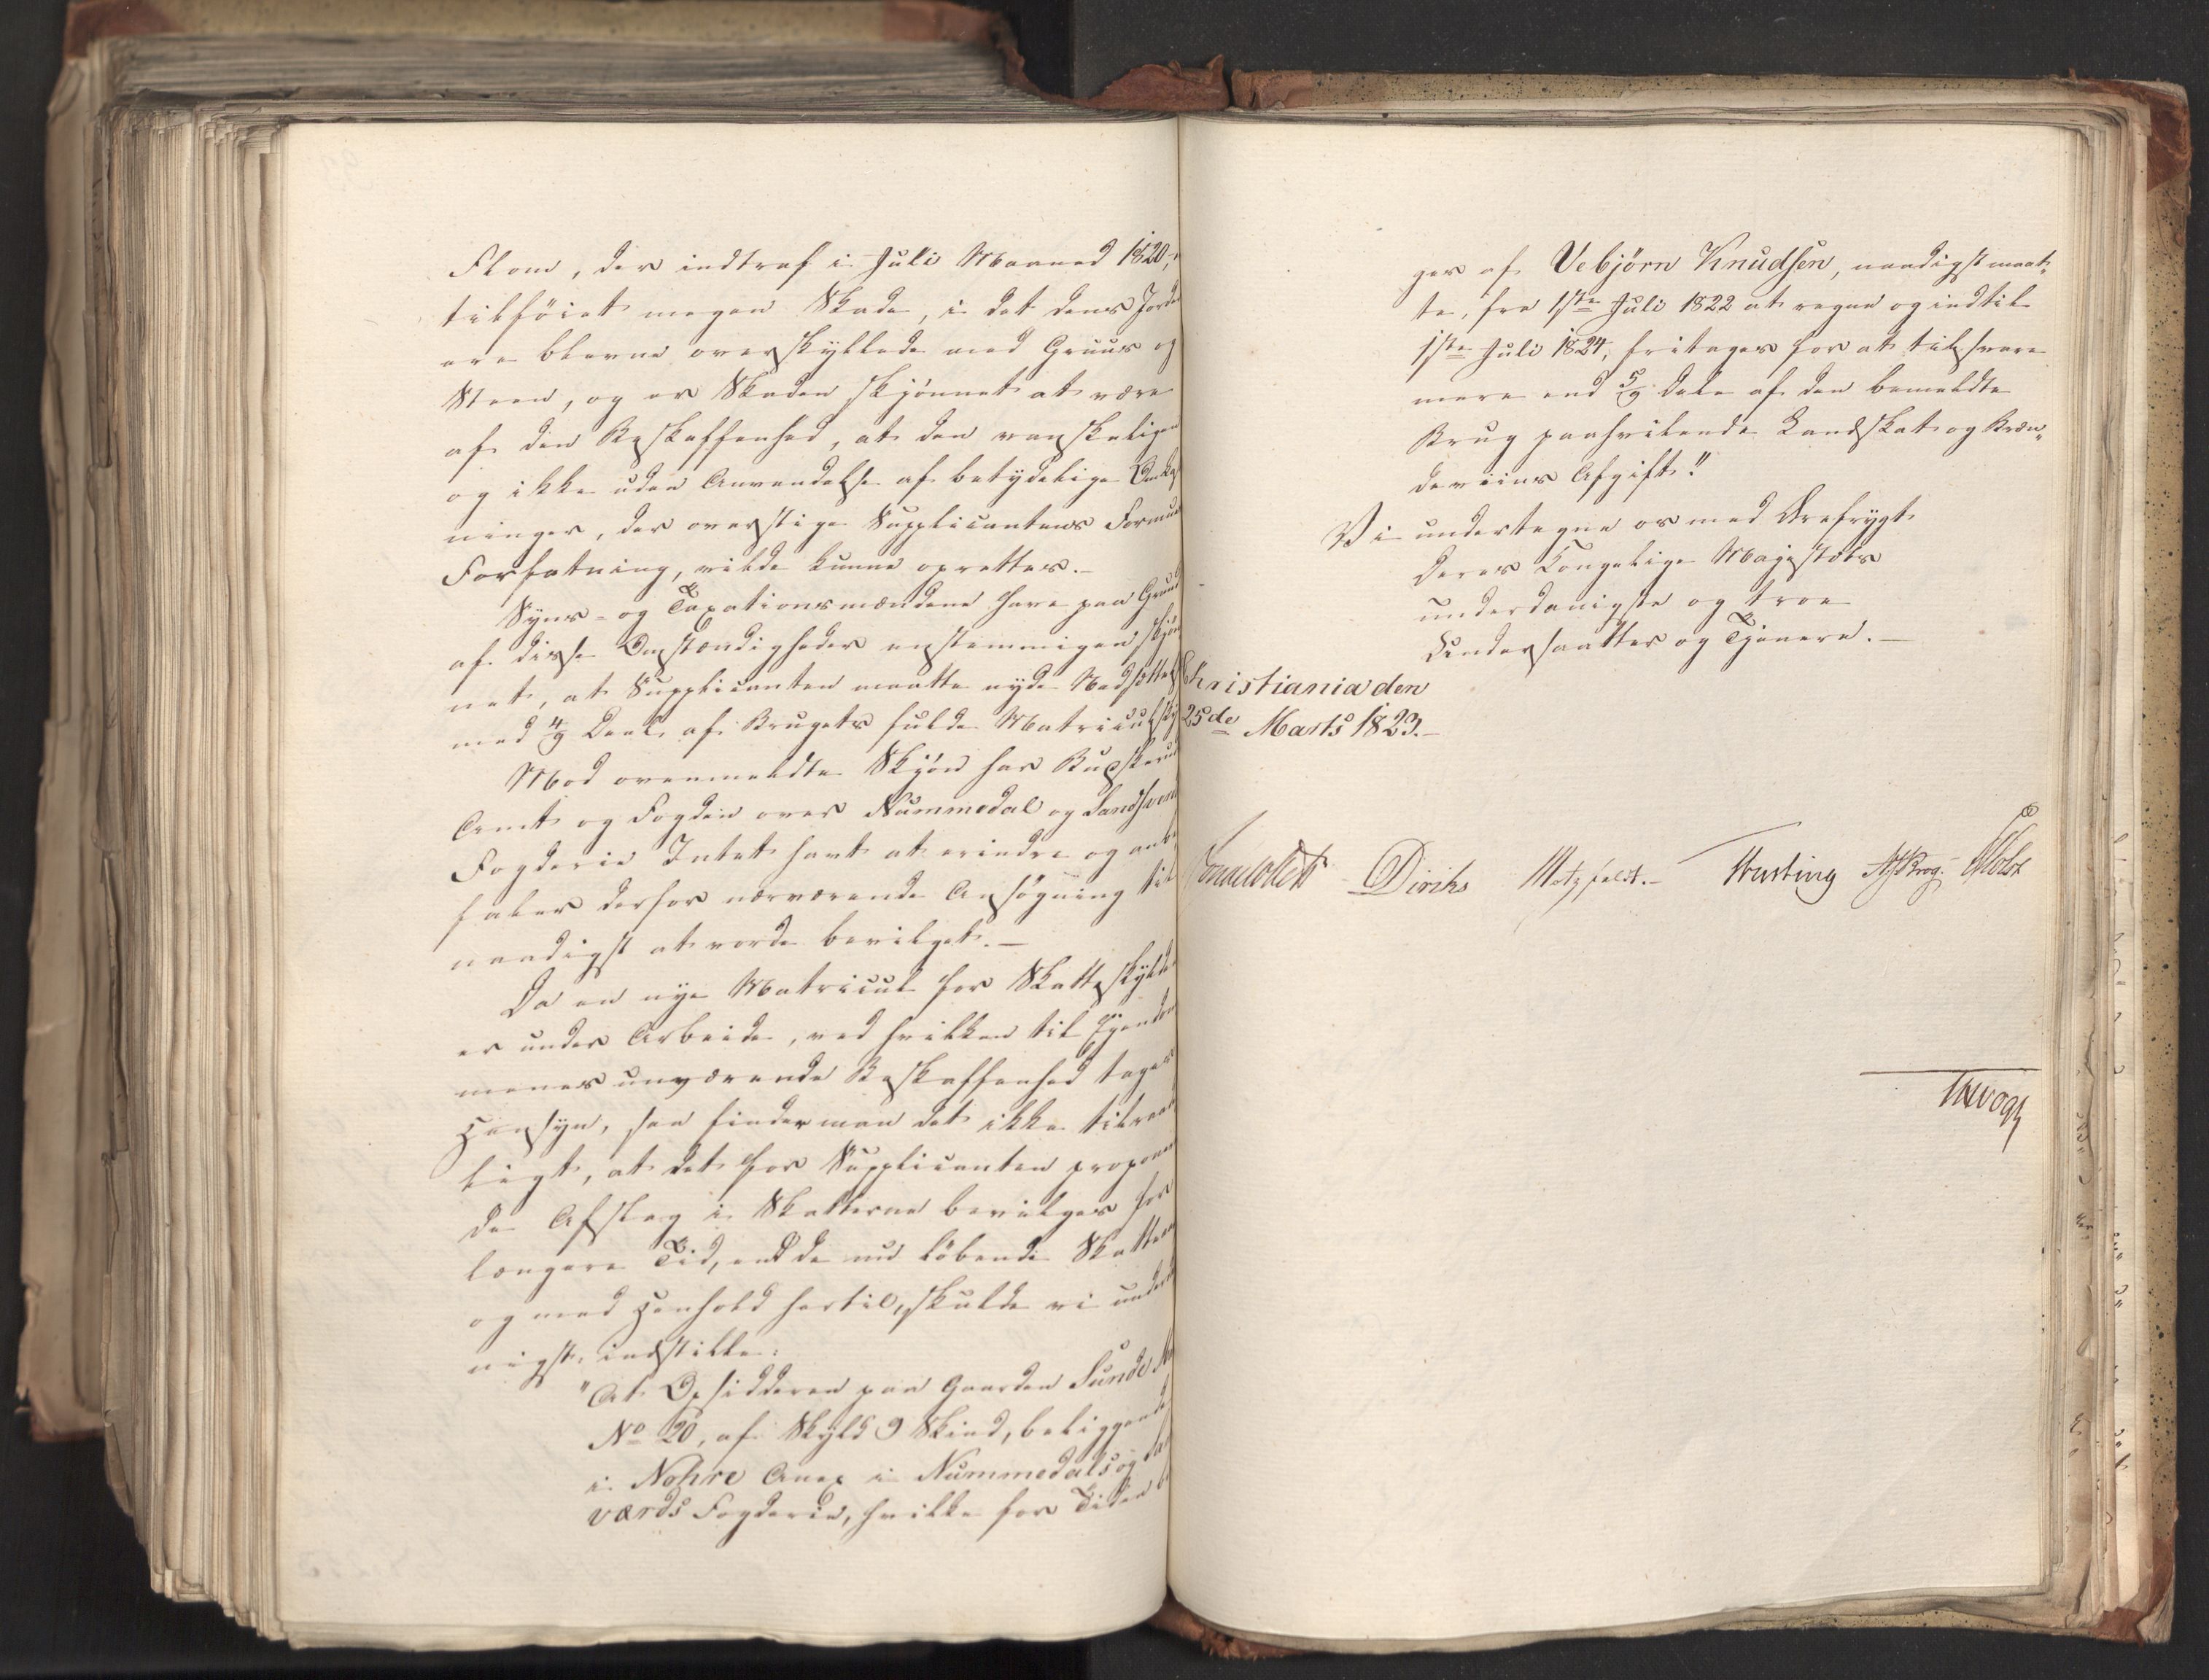 Flom, der indtraf i Juli Maaned 1820,
tilføiet megen Skade, i det dens Jorder
ere blevne overskyllede med Gruus og
Steen, og er Skaden skjønnet at være
af den Beskaffenhed, at den vanskeligen
og ikke uden Anvendelse af betydelige
ninger, der overstige Supplicantens Formue
Forfatning, vilde kunne oprettes.-
Syns- og Taxationsmændene have paa Grund
af disse Omstændigheder eenstemmigen skjøn
net, at Supplicanten maatte nyde Nedsættelse
med 4/9 Deel af Brugets fulde Matriculskyld
Mod ovenmeldte Skjøn har Buskerud
Amt og Fogden over Nummedal og Sandsværd
Fogderie Intet havt at erindre og anbe
faler derfor nærværende Ansøgning til
naadigst at vorde bevilget.-
Da en nye Matricul for Skatteskylden
er under Arbeide, ved hvilken til Eiendom
menes nuværende Beskaffenhed tages
Hensyn, saa finder man det ikke tilraade
ligt, at det for Supplicanten propone
de Afslag i Skatterne bevilges for
længere Tid, end de nu løbende Skatter
og med Henhold hertil, skulde vi underda
nigst indstille:
"At Opsidderen paa Gaarden Sunde
No 20, af Skyld 9 Skind, beliggende
i Nohre Anex i Nummedals og San
værds Fogderie, hvilke for Tiden
ges af Vebjørn Knudsen, naadigst maat„
te, fra 1ste Juli 1822 at regne og indtil
1ste Juli 1824, fritages for at tilsvare
mere end 5/9 Dele af den bemeldte
Brug paahvilende Landskat og Bræn„
deviins Afgift."
Vi undertegne os med Ærefrygt
Deres Kongelige Majestæts
underdanigste og troe
Undersaatter og Tjenere.-
Christiania den
25de Marts 1823.-
Diriks Motzfeldt.- Krog. Holst